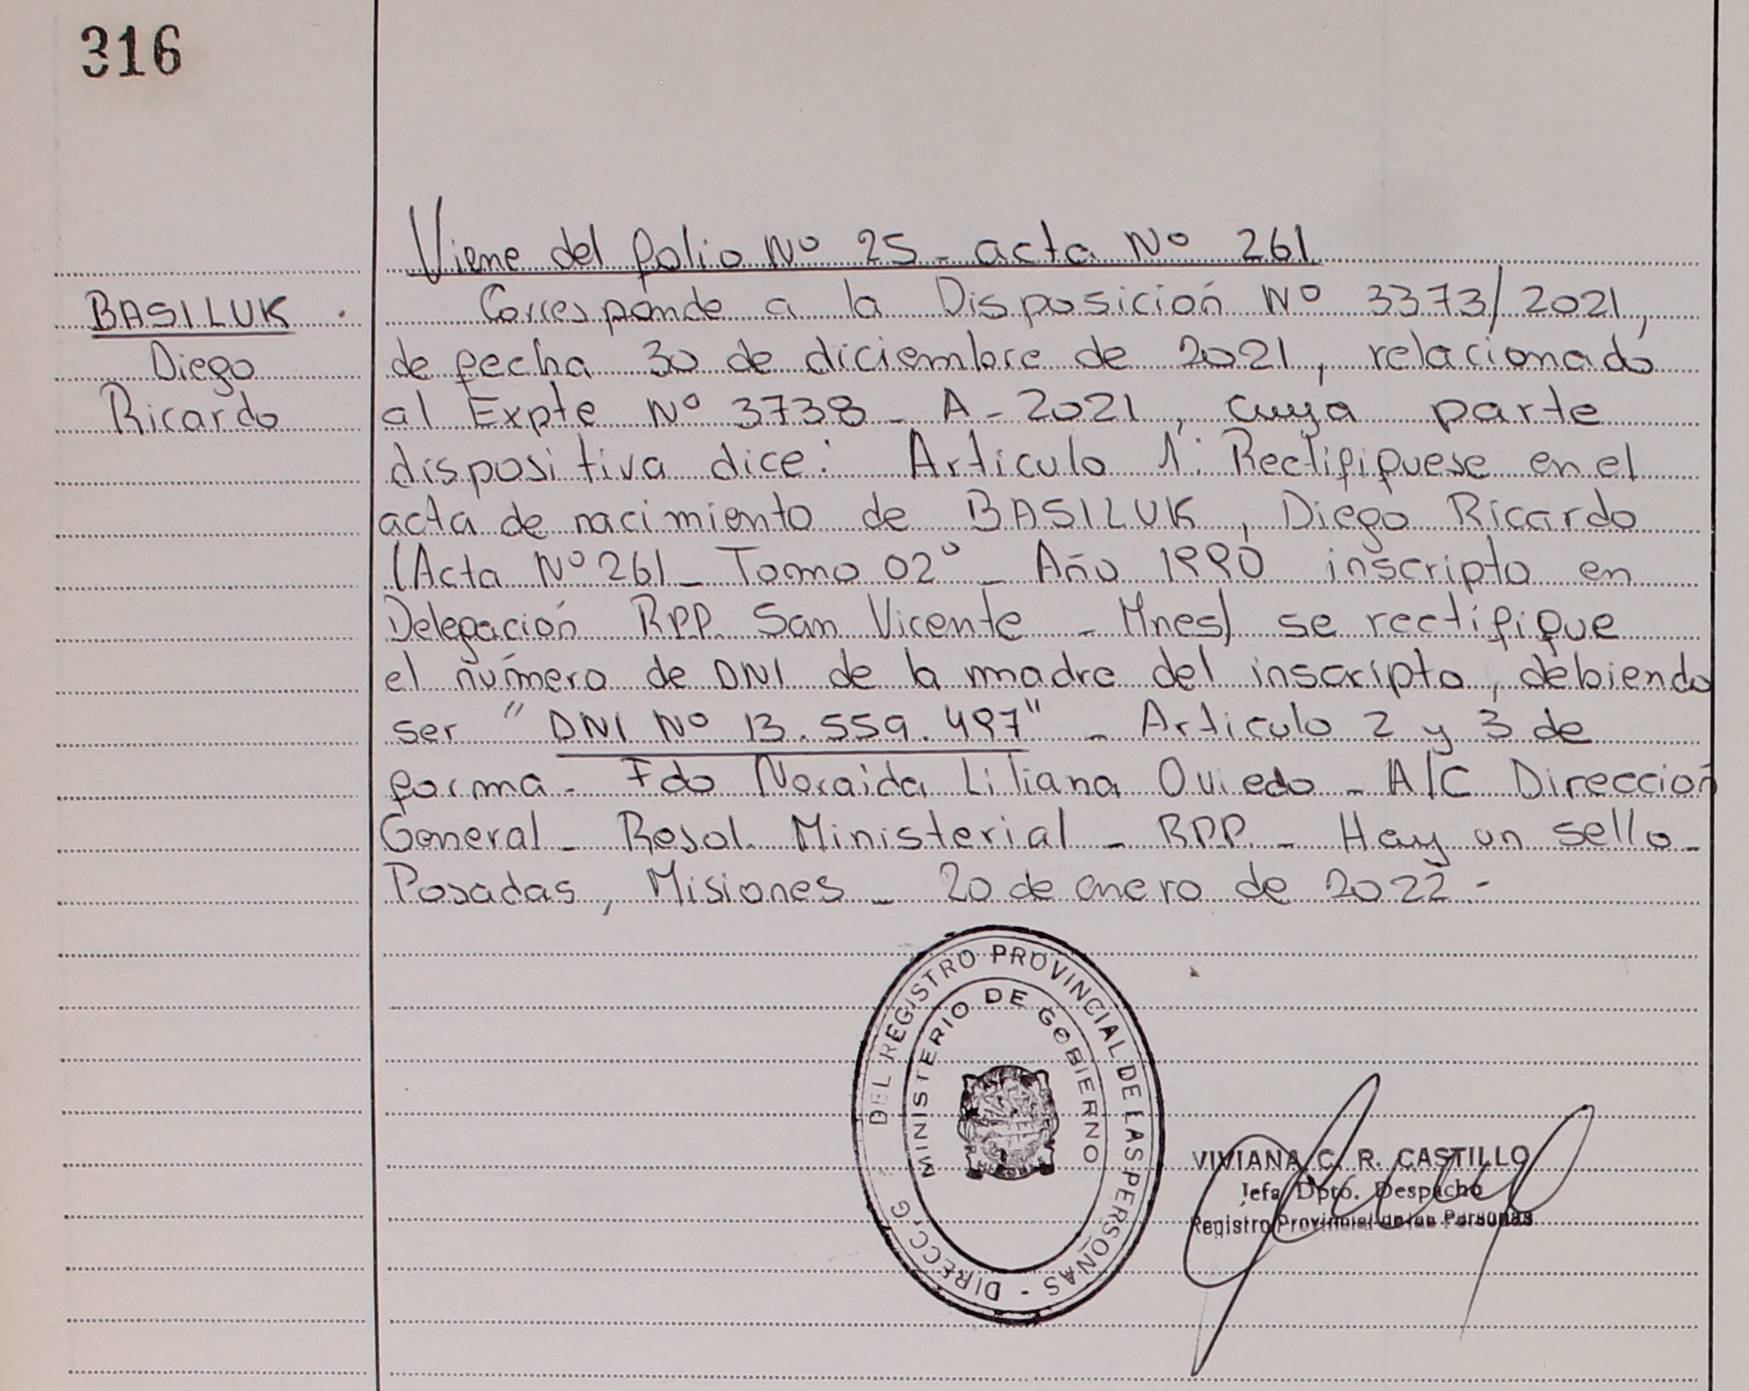 316
Viene del folio Nº 25 - acta Nº 261
BASILUK.
Diego
Ricardo
Corresponde a la Disposición Nº 3373/2021,
de fecha 30 de diciembre de 2021, relacionado
al Expte Nº 3738 - A - 2021, cuya parte
dispositiva dice: Articulo 1: Rectifiquese en el
acta de nacimiento de BASILUK, Diego Ricardo
(Acta Nº 261 - Tomo 02º - Año 1990 inscripto en
Delegación RPP. San Vicente - Mnes) se rectifique
el número de DNI de la madre del inscripto, debiendo
ser "DNI Nº 13.559.497" - Articulo 2 y 3 de
forma - Fdo Noraida Liliana Oviedo - A/C Dirección
General - Resol. Ministerial - RPP. - Hay un sello -
Posadas, Misiones - 20 de enero de 2022 -
DIRECC. G DEL REGISTRO PROVINCIAL DE LAS PERSONAS -
MINISTERIO DE GOBIERNO
VIVIANA C. R. CASTILLO
Jefa Dpto. Despacho
Registro Provincial de las Personas